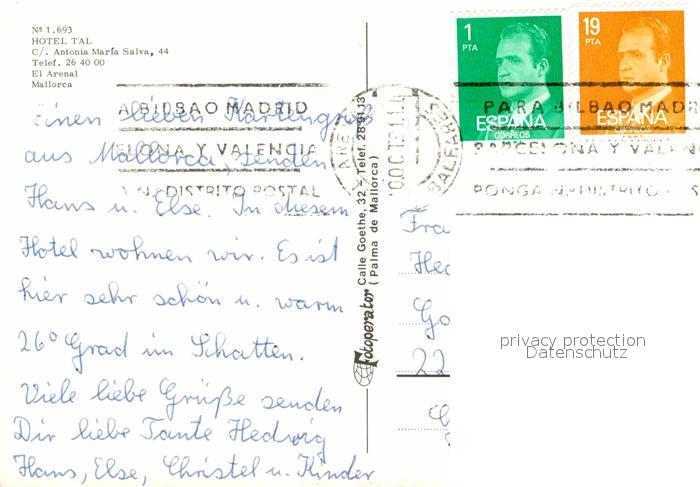 Nº 1.693
HOTEL TAL
C/. Antonia María Salva, 44
Telef. 26 40 00
El Arenal
Mallorca
1
PTA
ESPAÑA
CORREOS
19
PTA
ESPAÑA
A BILBAO MADRID
ELONA Y VALENCIA
DISTRITO POSTAL
PARA BILBAO MADR
BARCELONA Y VALEN
PONGA N. DISTRITO
BALEARES
Einen lieben Kartengruß
aus Mallorca, senden
Hans u. Else. In diesem
Hotel wohnen wir. Es ist
hier sehr schön u. warm
26° Grad im Schatten.
Viele liebe Grüße senden
Dir liebe Tante Hedwig
Hans, Else, Christel u. Kinder
Fotoperator Calle Goethe, 32 - Telef. 28 91 13
(Palma de Mallorca)
Fra
Hed
Go
22
privacy protection
Datenschutz